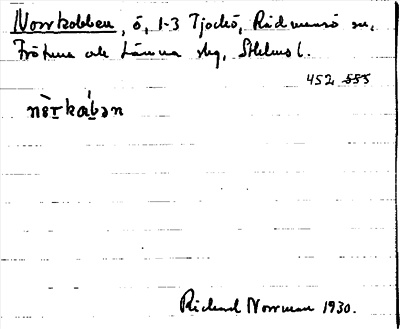 Norrkobben, ö, 1-3 Tjockö, Rådmansö sn,
Frötuna och Länna skg, Sthlms l.
452 555
nèr̲káb̲ən
Richard Norrman 1930.